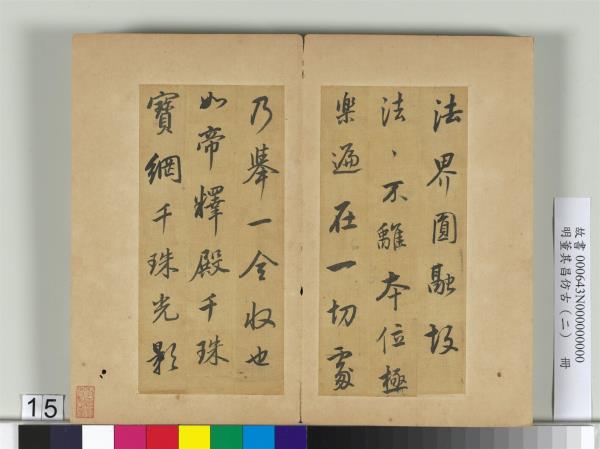 法界圓融故
法、不離本位極
樂遍在一切處
乃舉一全收也
如帝釋殿千珠
寶網千珠光影
故書 000643N000000000
明董其昌仿古（二） 冊
15